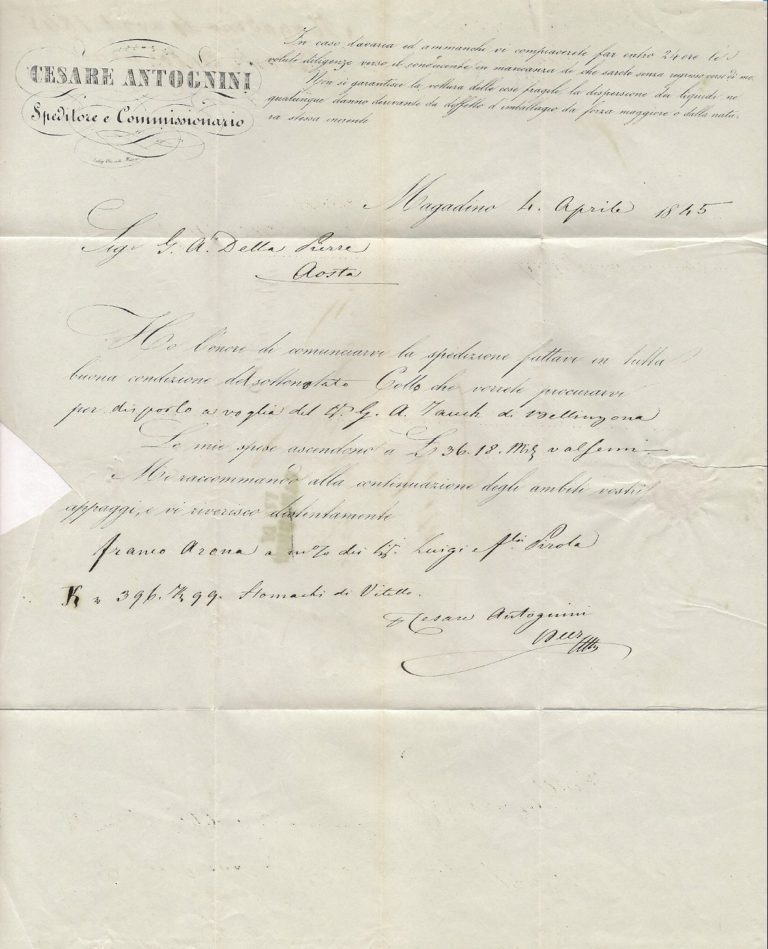 CESARE ANTOGNINI
Speditore e Commissionario
In caso d'avaria ed ammanchi vi compiacerete far entro 24 ore le
volute diligenze verso il conducente in mancanza di che sarete senza regresso verso di me.
Non si garantisce la vettura delle cose fragili la dispersione dei liquidi ne
qualunque danno derivante da difetto d'imballagio da forza maggiore o dalla natu-
ra stessa inerente
Magadino 4. Aprile 1845
Sigr G. A. Della Pierre
Aosta
Ho l'onore di comunciarvi la spedizione fattavi in tutta
buona condizione del sottonotato Collo che vorrete procurarvi
per disporlo a voglia del Sr. G. A. Jauch di Bellinzona
Le mie spese ascendono a £ 36.18.
Mi raccommando alla continuazione degli ambiti vostri
appoggi, e vi riverisco distintamente
franco Arona a m/o dei Sri. Luigi e Flli Pirola
396. 99. Stomachi di Vitello.
Cesare Antognini